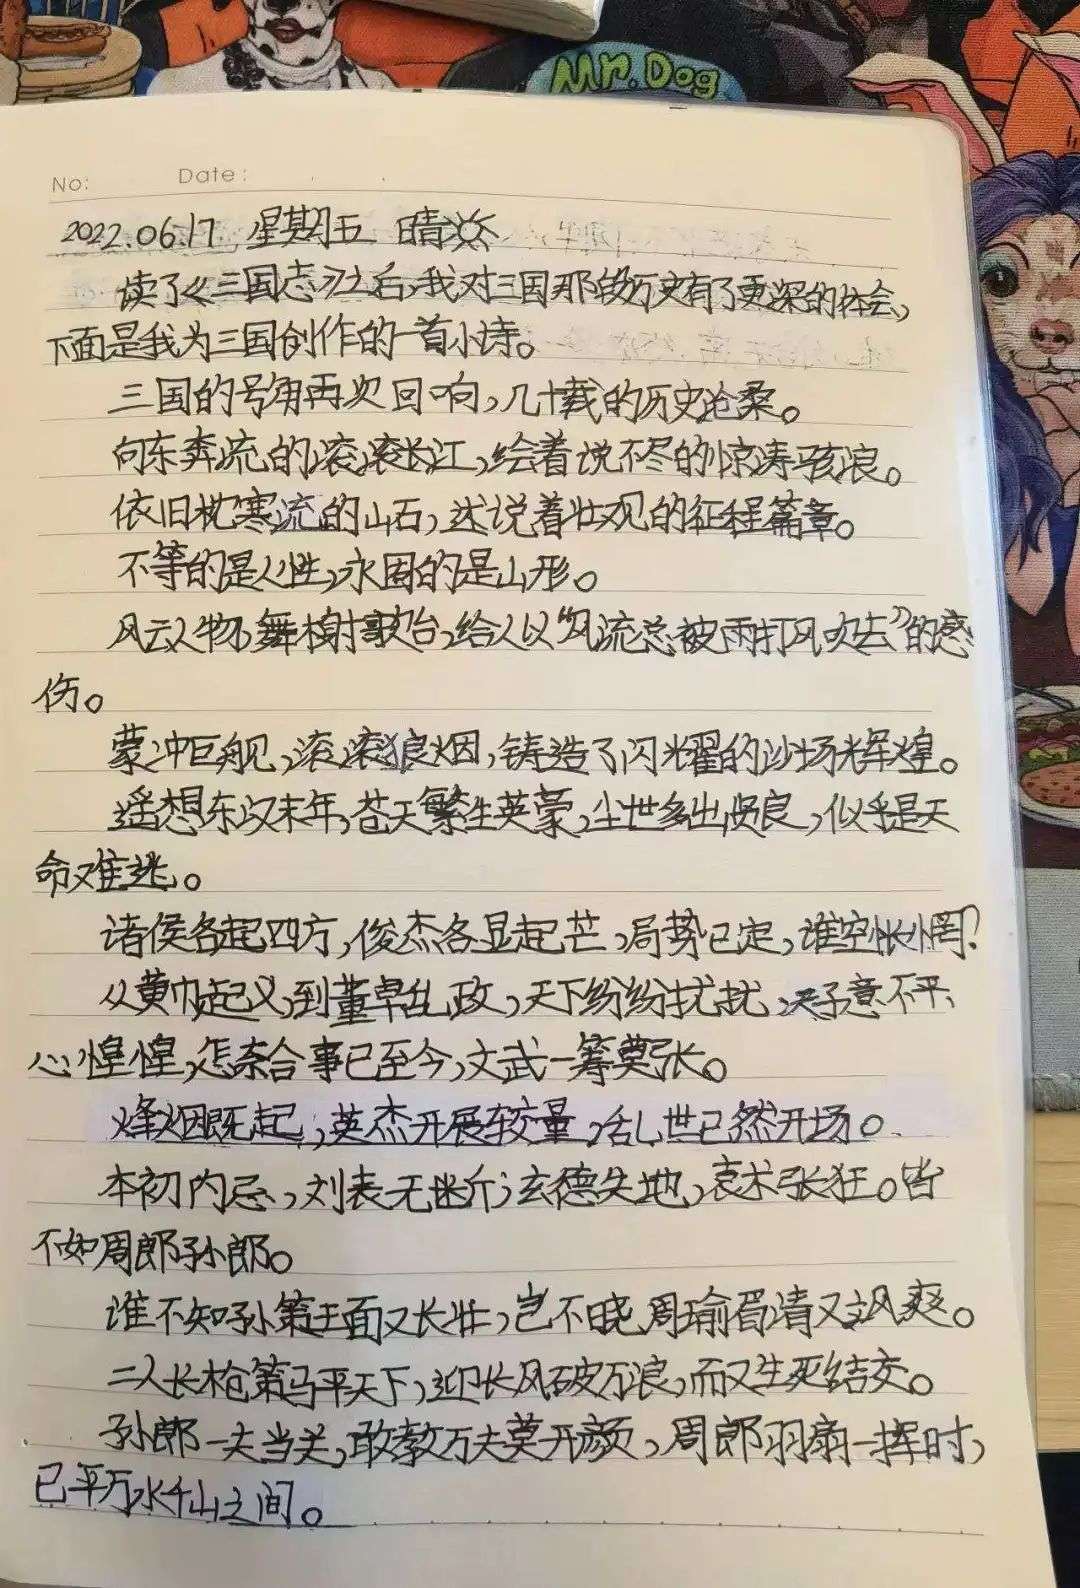 Mr. Dog
No:
Date:
2022.06.17 星期五 晴
读了《三国志》之后，我对三国那段历史有了更深的体会，
下面是我为三国创作的一首小诗。
三国的号角再次回响，几十载的历史沧桑。
向东奔流的滚滚长江，绘着说不尽的惊涛骇浪。
依旧枕寒流的山石，述说着壮观的征程篇章。
不等的是人性，永固的是山形。
风云人物，舞榭歌台，给人以“风流总被雨打风吹去”的感
伤。
蒙冲巨舰，滚滚狼烟，铸造了闪耀的沙场辉煌。
遥想东汉末年，苍天繁生英蒙，尘世多出贤良，似乎是天
命难逃。
诸侯各起四方，俊杰各显起芒，局势已定，谁空怅惘？
从黄巾起义，到董卓乱政，天下纷纷扰扰，天子意不平，
心惶惶，怎奈合事已至今，文武一筹莫张。
烽烟既起，英杰开展较量，乱世已然开场。
本初内忌，刘表无断，玄德失地，袁术张狂。皆
不如周郎孙郎。
谁不知孙策王面又长壮，岂不晓周瑜眉清又飒爽。
二人长枪策马平天下，迎长风破万浪，而又生死结交。
孙郎一夫当关，敢教万夫莫开颜，周郎羽扇一挥时，
已平万水千山之间。